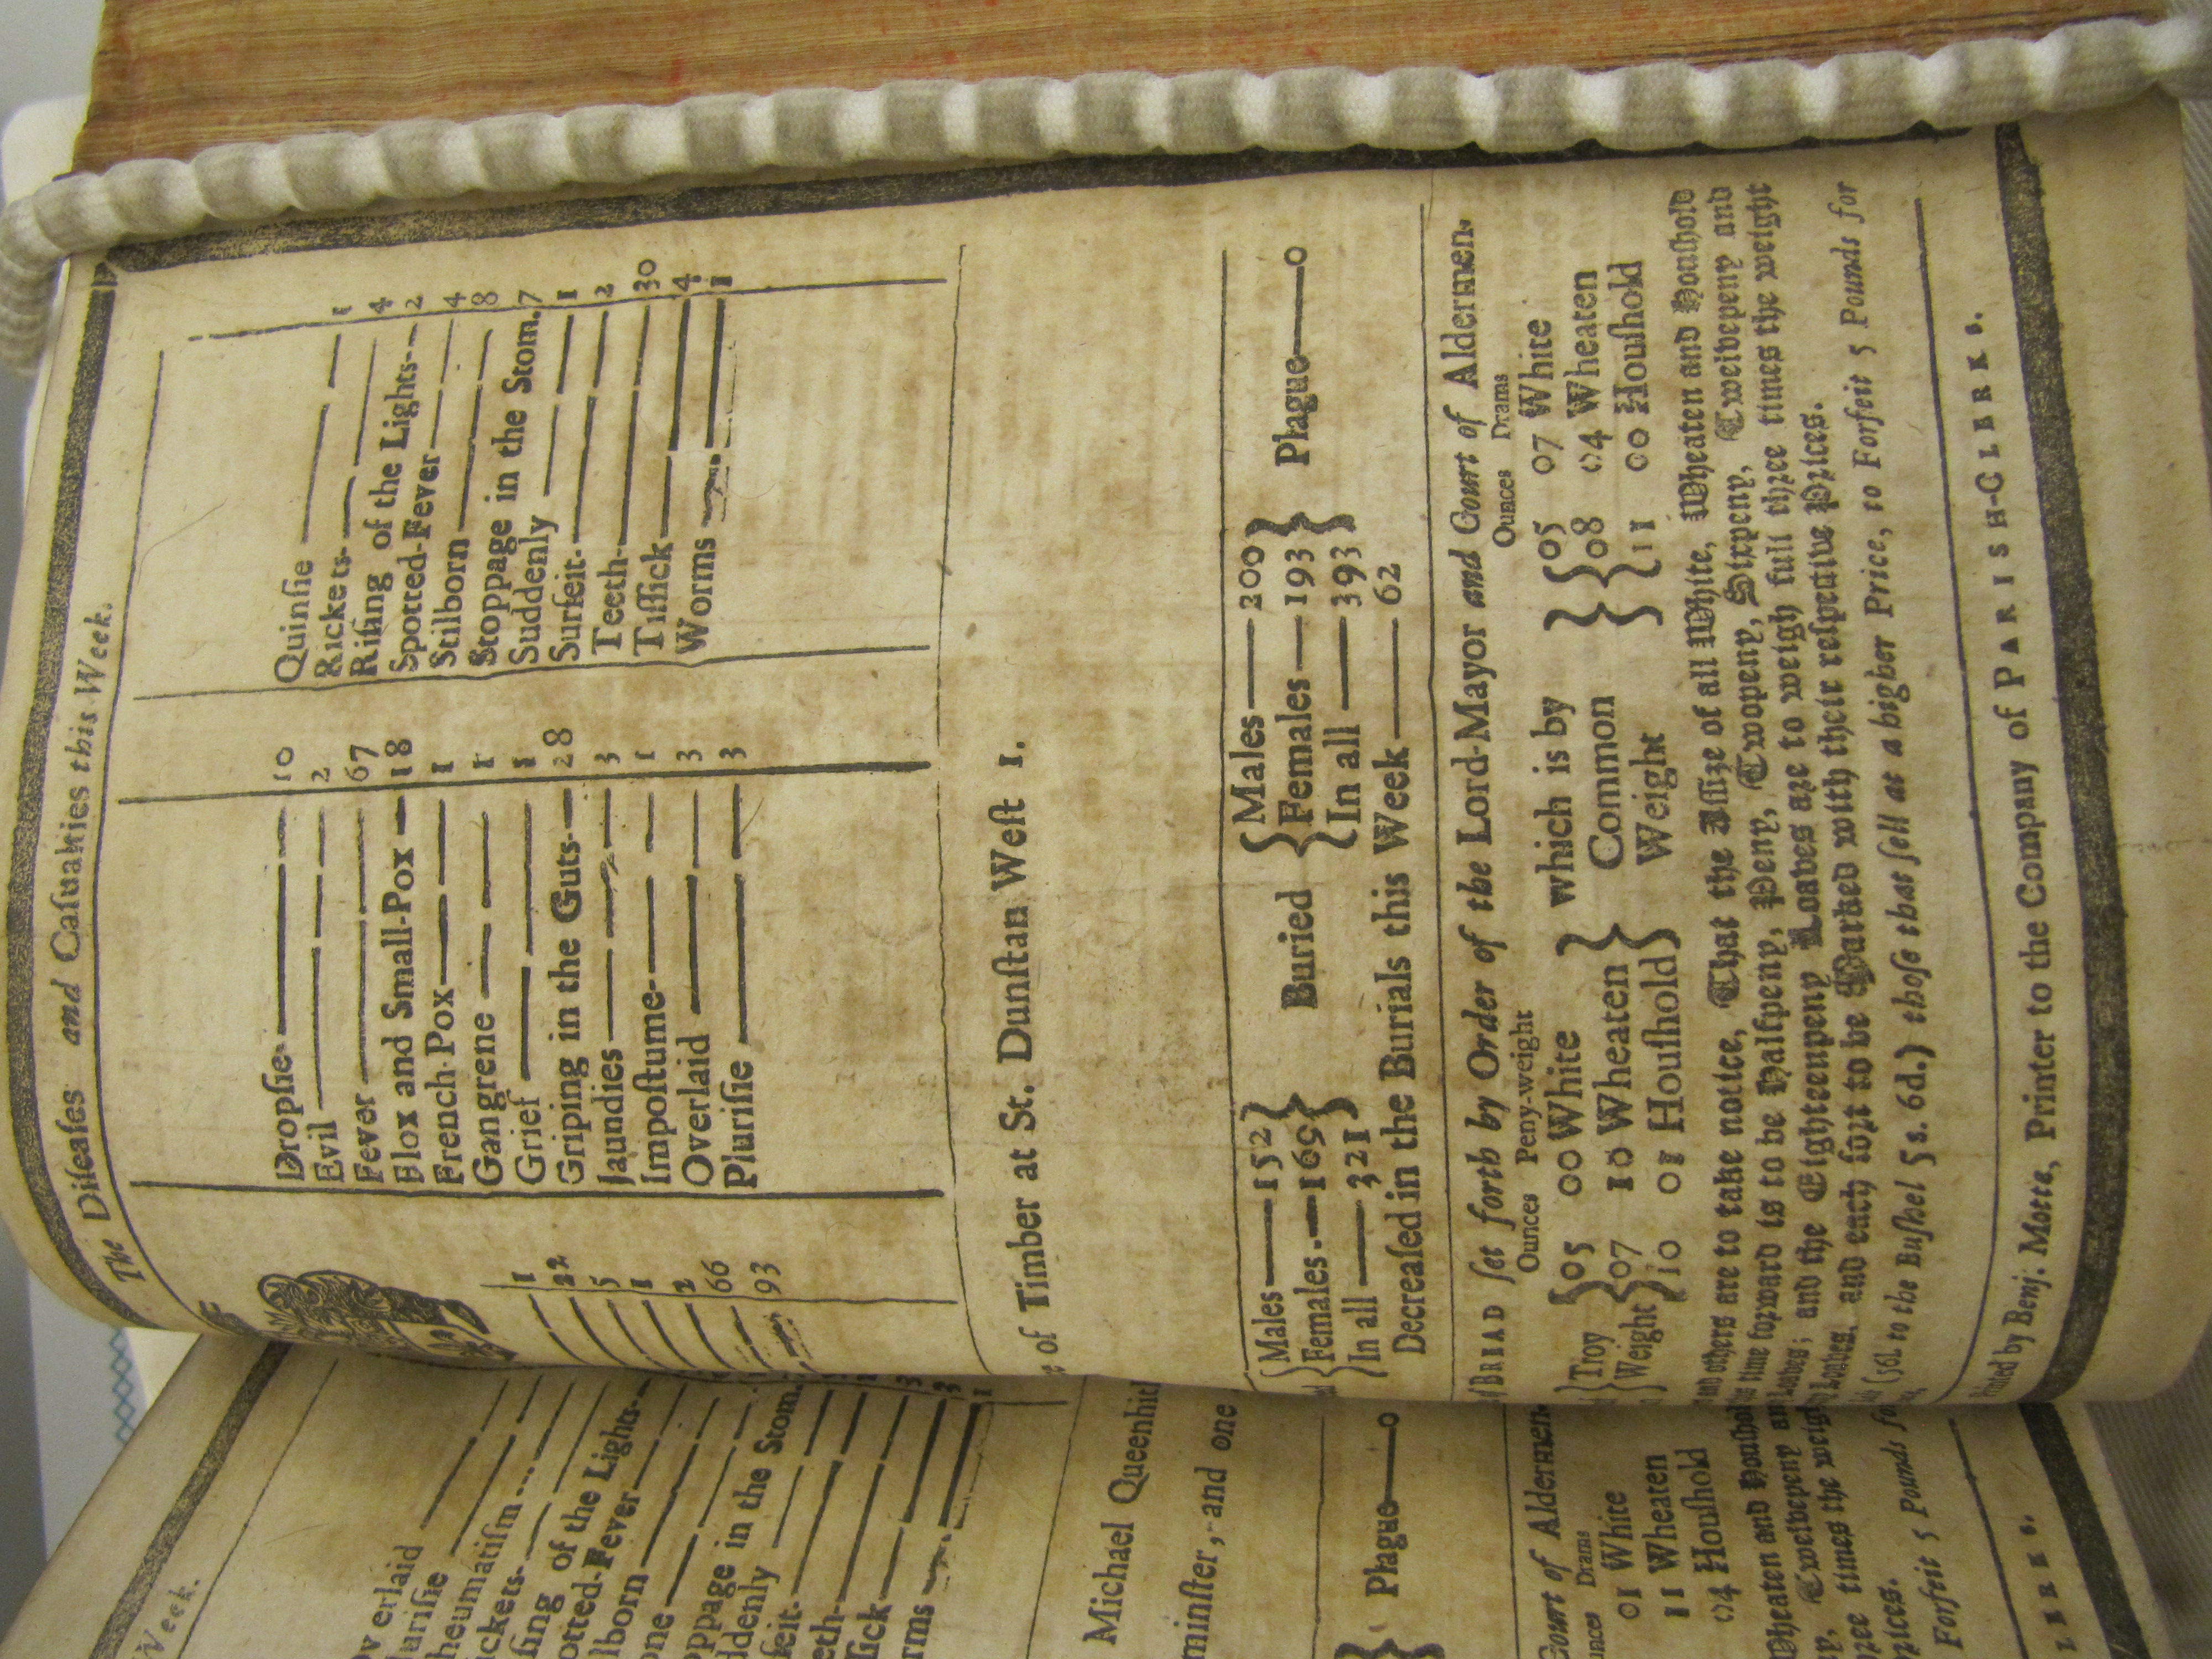 The Diſeaſes and Caſualties this Week.
1
22
5
1
2
66
93
Dropſie 10
Evil 2
Fever 67
Flox and Small-Pox 18
French-Pox 1
Gangrene 1
Grief 1
Griping in the Guts 28
Jaundies 3
Impoſtume 1
Overlaid 3
Pluriſie 3
Quinſie 1
Rickets 4
Riſing of the Lights 2
Spotted-Fever 4
Stilborn 8
Stoppage in the Stom. 7
Suddenly 1
Surfeit 2
Teeth 30
Tiſſick 4
Worms 1
of Timber at St. Dunſtan Weſt 1.
Males 152
Females 169
In all 321
Buried
Males 200
Females 193
In all 393
Plague 0
Decreaſed in the Burials this Week 62
BREAD ſet forth by Order of the Lord-Mayor and Court of Aldermen.
Ounces Peny-weight
Ounces Drams
Troy Weight
05 00 White
07 10 Wheaten
10 01 Houſhold
which is by Common Weight
05 07 White
08 04 Wheaten
11 00 Houſhold
and others are to take notice, That the Aſſize of all White, Wheaten and Houſhold
time forward is to be Halfpeny, Peny, Twopeny, Sixpeny, Twelvepeny and
and the Eighteenpeny Loaves are to weigh full three times the weight
Loaves, and each ſort to be Marked with their reſpective Prices.
(56l. to the Buſhel 5s. 6d.) thoſe that ſell at a higher Price, to Forfeit 5 Pounds for
Printed by Benj. Motte, Printer to the Company of PARISH-CLERKS.
Week.
erlaid
uriſie
heumatiſm
ickets
ſing of the Lights
otted-Fever
lborn
one
ppage in the Stom.
ddenly
feit
eth
ſick
rms
Michael Queenhit
minſter, and one
Plague 0
Court of Aldermen.
Drams
01 White
11 Wheaten
04 Houſhold
Wheaten and Houſhold
Twelvepeny an
times the weigh
rices.
Forfeit 5 Pounds fo
LERKS.